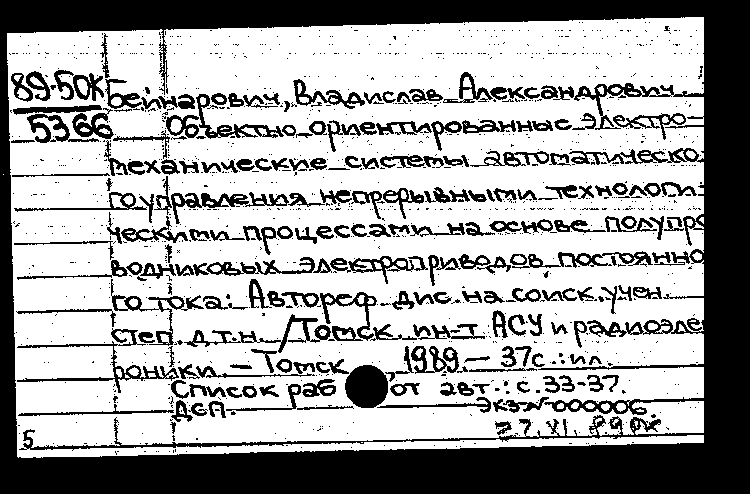 89-50К Бейнарович, Владислав Александрович.
5366 Объектно ориентированные электро-
механические системы автоматическо
го управления непрерывными технологи-
ческими процессами на основе полупро
водниковых электроприводов постоянно
го тока: Автореф. дис. на соиск. учен.
степ. д.т.н. / Томск. ин-т АСУ и радиоэле
роники. – Томск, 1989. – 37с.: ил.
Список работ авт.: с. 33-37.
ДСП. Экз № 000006.
5 27. XI. 89